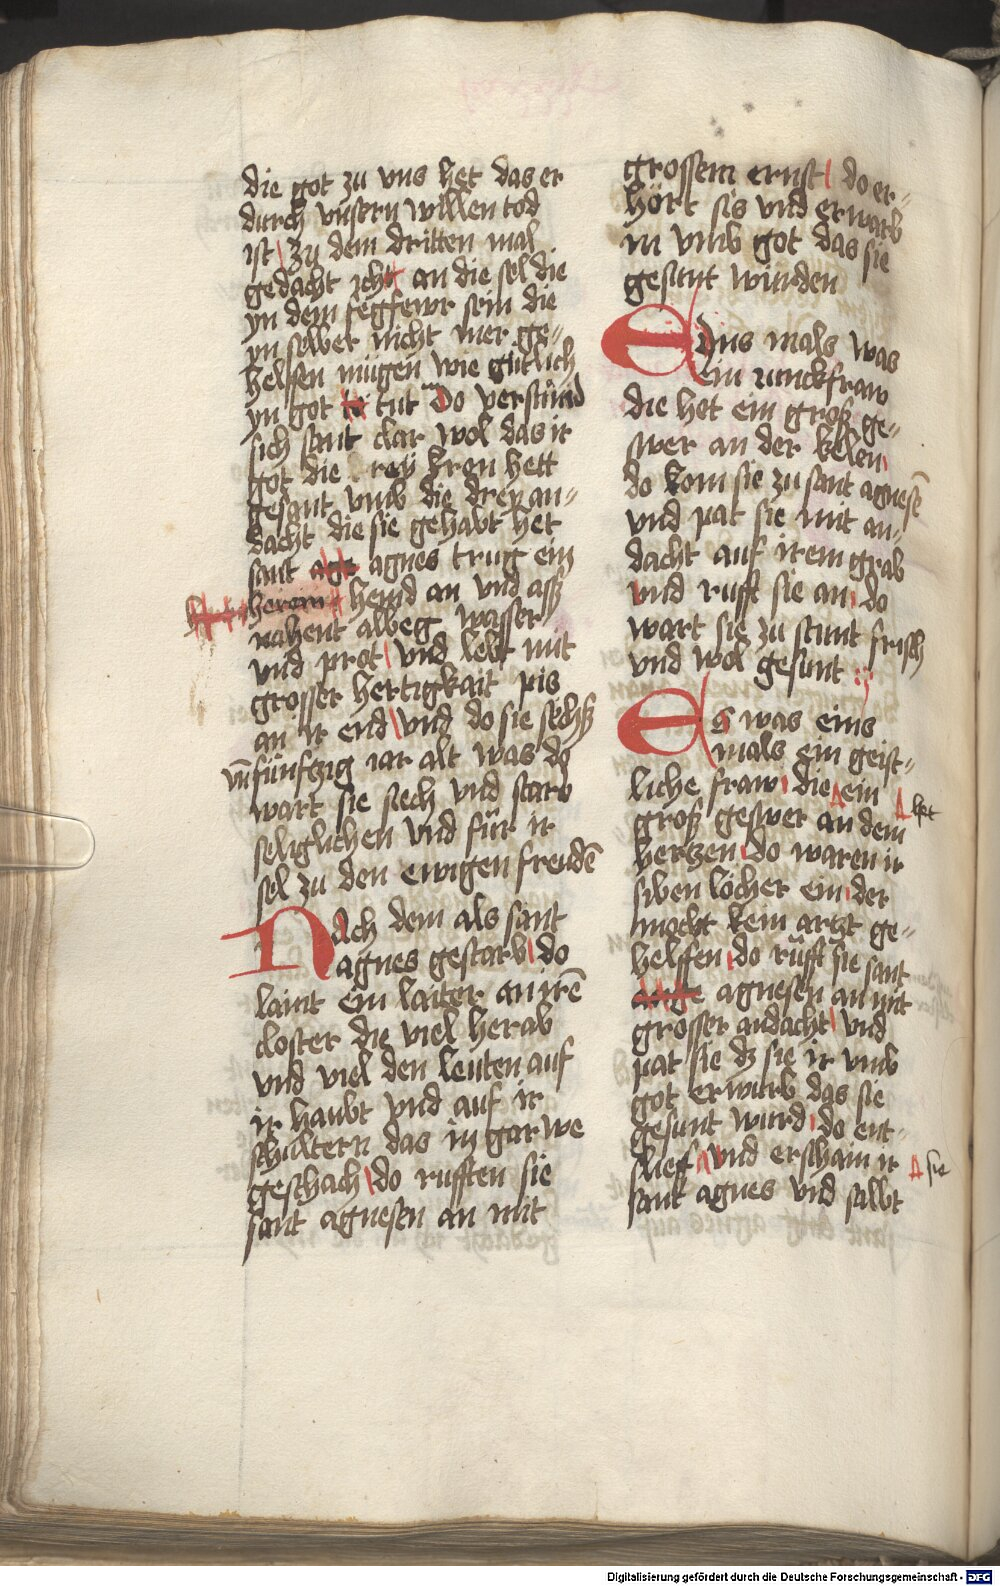 die got zu uns het das er
durch unsern willen tod
ist zu dem dritten mal
gedacht icht an die sel die
yn dem fegfewr sein die
yn selber nicht mer ge¬
helffen mügen wie gütlich
yn got te tut Do verstund
sich sant clar wol das ir
got die rey kron hett
gesant umb die drey an¬
dacht die sie gehabt het
sant agt agnes trug ein
herein hemd an und aß
nahent alweg wasser
und prot und lebt mit
grosser hertigkait pis
an ir end und do sie sechß
uñ fünfzig iar alt was do
wart sie siech und starb
seliglichen und für ir
sel zu den ewigen freudē
Nach dem als sant
agnes gestarb do
laint ein laiter an irē
closter die viel herab
und viel den leuten auf
ir haubt und auf ir
schultern das in gar we
geschach do rufften sie
sant agnesen an mit
grossem ernst do er¬
hört sis und erwarb
in umb got das sie
gesunt wurden
Eyns mals was
ein iunckfraw
die het ein groß ge¬
swer an der kelen
do kom sie zu sant agnesē
und pat sie mit an¬
dacht auf irem grab
und rufft sie an do
wart sie zu stunt frisch
und wol gesunt
Es was eins
mals ein geist¬
liche fraw die ein
het
groß geswer an dem
hertzen do waren ir
siben löcher ein der
mocht kein artzt ge¬
helffen do rüfft sie sant
agnesen an mit
grosser andacht und
pat sie dz sie ir umb
got erwurb das sie
gesunt wurd do ent¬
slieff und erschain ir
sie
sant agnes und salbt
Digitalisierung gefördert durch die Deutsche Forschungsgemeinschaft - DFG